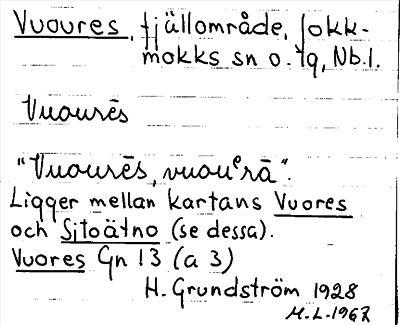 Vuoures, fjällområde, Jokk-
mokks sn o. tg, Nb.l.
Vuourēs
"Vuourēs, vuouᵉrā".
Ligger mellan kartans Vuores
och Sjtoätno (se dessa).
Vuores Gn 13 (a 3)
H. Grundström 1928
M.L. 1967